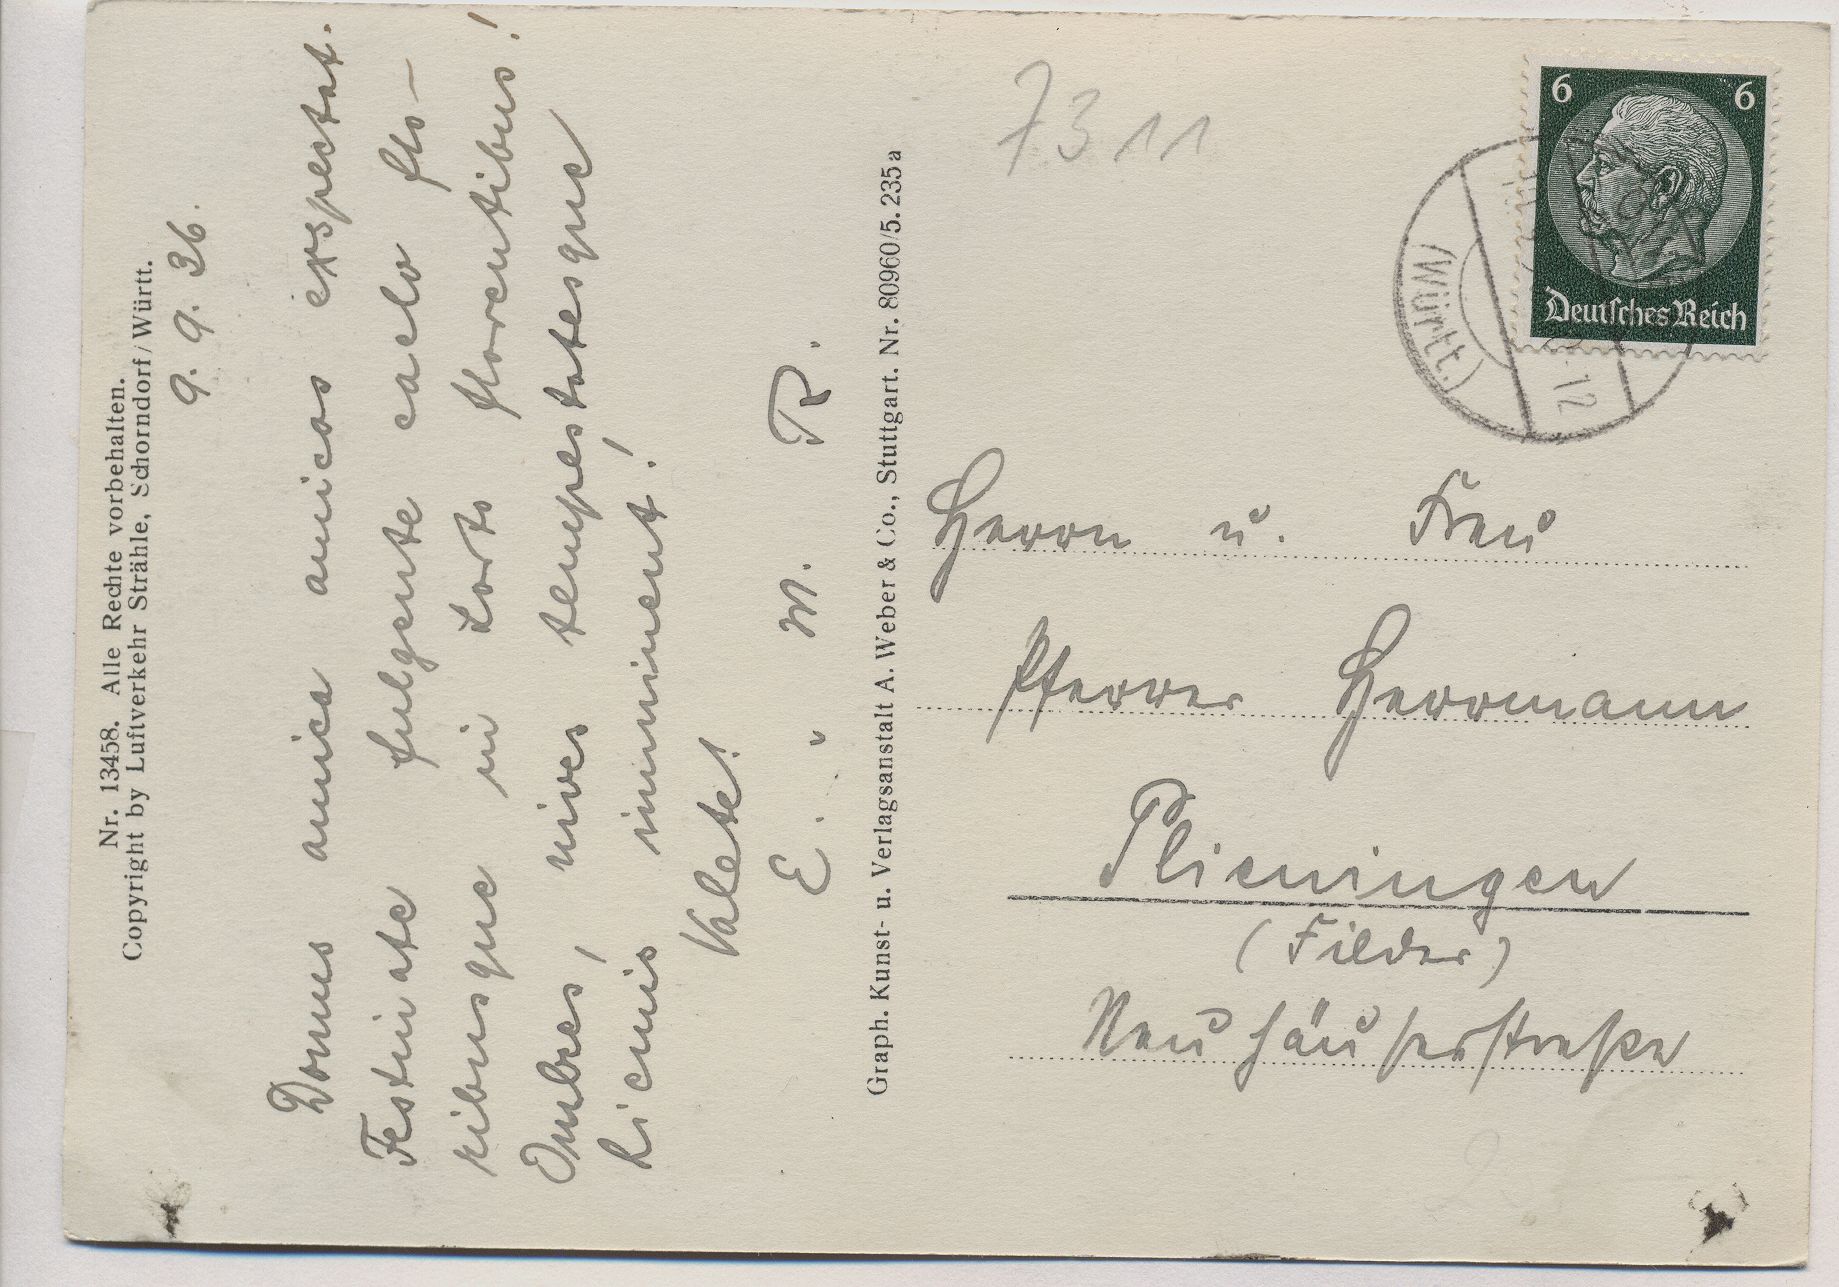 Nr. 13458. Alle Rechte vorbehalten.
Copyright by Luftverkehr Strähle, Schorndorf/Württ.
9. 9. 36.
Domus amica amicos exspectat.
Festinate fulgente caelo flo-
ribusque in horto florentibus!
Imbres, nives tempestatesque
hiemis imminent!
Valete!
E. u. M. R.
Graph. Kunst- u. Verlagsanstalt A. Weber & Co., Stuttgart. Nr. 80960/5. 235a
7311
6 6
Deutsches Reich
(Württ.)
12
Herrn u. Frau
Pfarrer Herrmann
Plieningen
(Filder)
Neuhäuserstraße